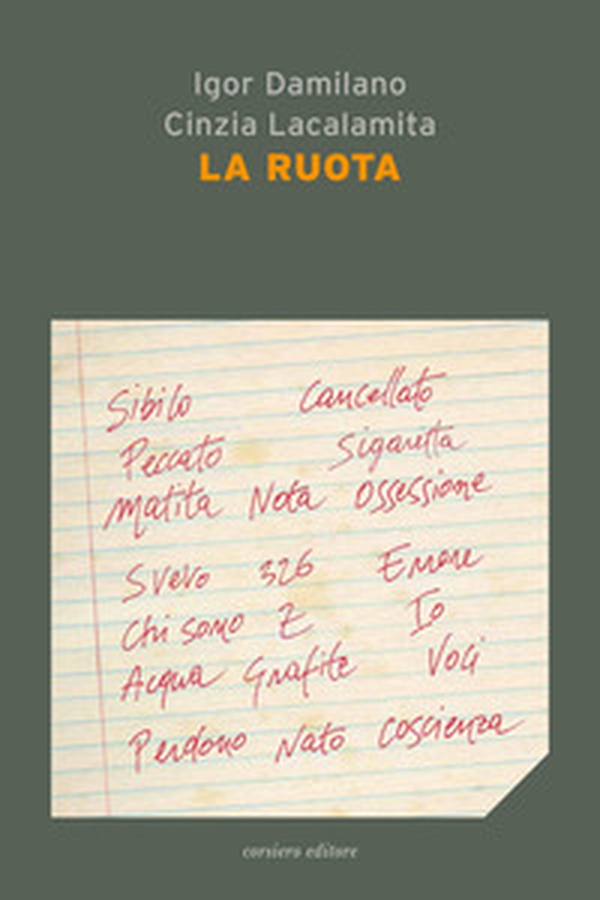 Igor Damilano
Cinzia Lacalamita
LA RUOTA
Sibilo Cancellato
Peccato Sigaretta
Matita Nota Ossessione
Svevo 326 Errore
Chi sono Z Io
Acqua Grafite Voci
Perdono Nato Coscienza
corsiero editore